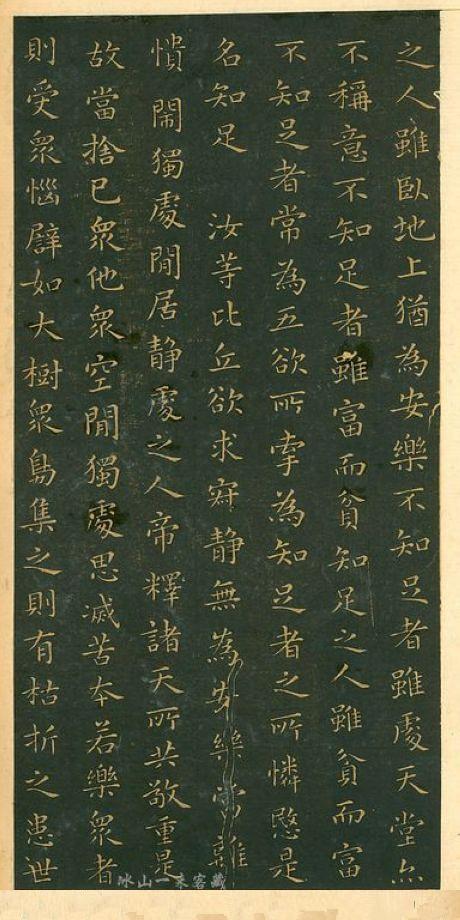 之人雖臥地上猶為安樂不知足者雖處天堂亦
不稱意不知足者雖富而貧知足之人雖貧而富
不知足者常為五欲所牽為知足者之所憐愍是
名知足 汝等比丘欲求寂静無為安樂當離
憒閙獨處閒居静處之人帝釋諸天所共敬重是
故當捨己衆他衆空閒獨處思滅苦本若樂衆者
則受衆惱譬如大樹衆鳥集之則有枯折之患世
冰山一来客藏